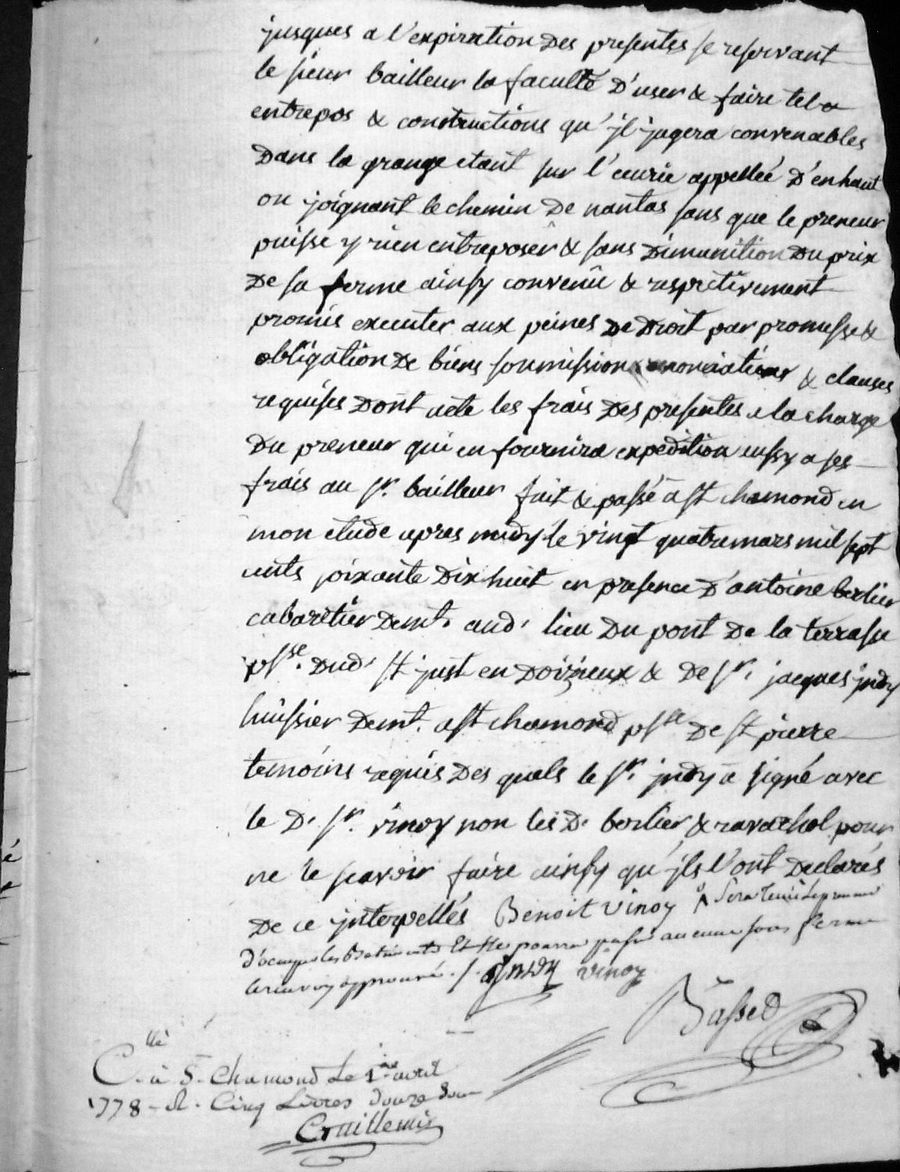 jusques a l'expiration des presentes se reservant
le sieur bailleur la faculté d'user & faire tel
entrepos & constructions qu'jl jugera convenables
dans la grange etant sur l'ecurie appellée d'enhaut
ou joignant le chemin de nantas sans que le preneur
puisse y rien entreposér & sans dimunition du prix
de sa ferme ainsy convenû & respectivement
promis executer aux peines de droit par promesse &
obligation de biens soumissions renonciations & clauses
requises dont acte les frais des presentes a la charge
du preneur qui en fournira expedition aussy a ses
frais au sr. bailleur fait & passé a st chamond en
mon etude apres midy le vingt quatre mars mil sept
cents soixante dix huit en presence d'antoine berlier
cabaretier demt. aud. lieu du pont de la terrasse
psse. dud. st just en doizieux & de sr. jacques jndy
huissier demt. a st chamond psse de st pierre
temoins requis des quels le sr. jndy a signé avec
le d. sr. vinoy non les d. berlier & ravachol pour
ne le scavoir faire ainsy qu'jls l'ont declarés
de ce jnterpellés Benoit vinoy sera tenu le preneur
d'occuper les batiments et ne pourra passer aucune sous ferme
le renvoy approuvé ./. jndy vinoy
Basset
Cllé a St. Chamond le 1er avril
1778 - R. Cinq livres douze sous